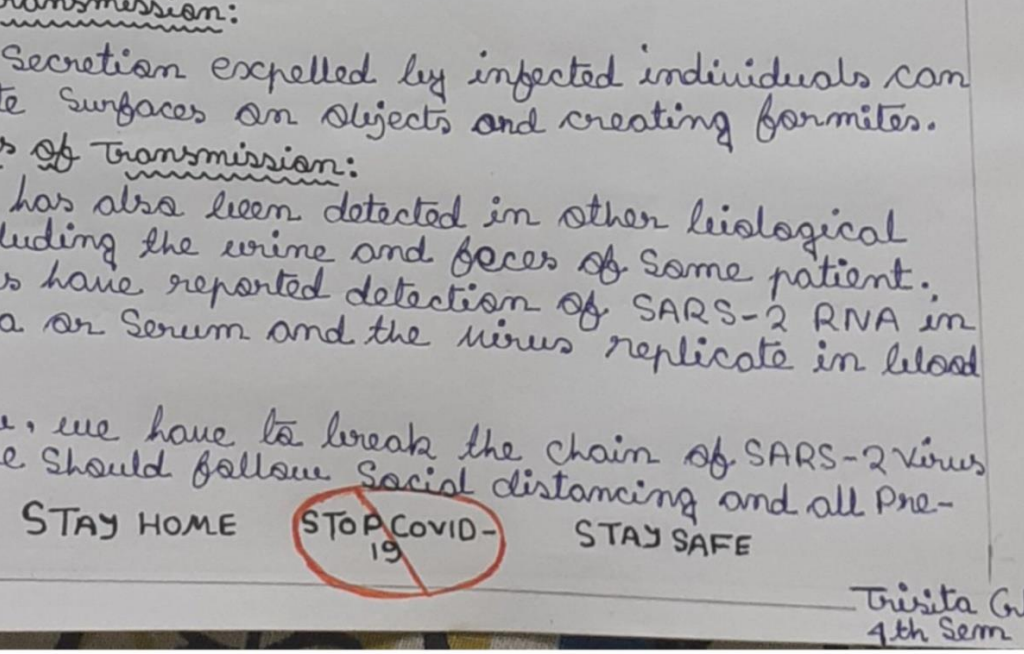 ransmission:
Secretion expelled by infected individuals can
te Surfaces on objects and creating formites.
s of Transmission:
has also been detected in other biological
luding the urine and feces of some patient.
s have reported detection of SARS-2 RNA in
a or Serum and the virus replicate in blood
e, we have to break the chain of SARS-2 Virus
e should follow Social distancing and all Pre-
STAY HOME STOP COVID-19 STAY SAFE
Trisita G
4th Sem